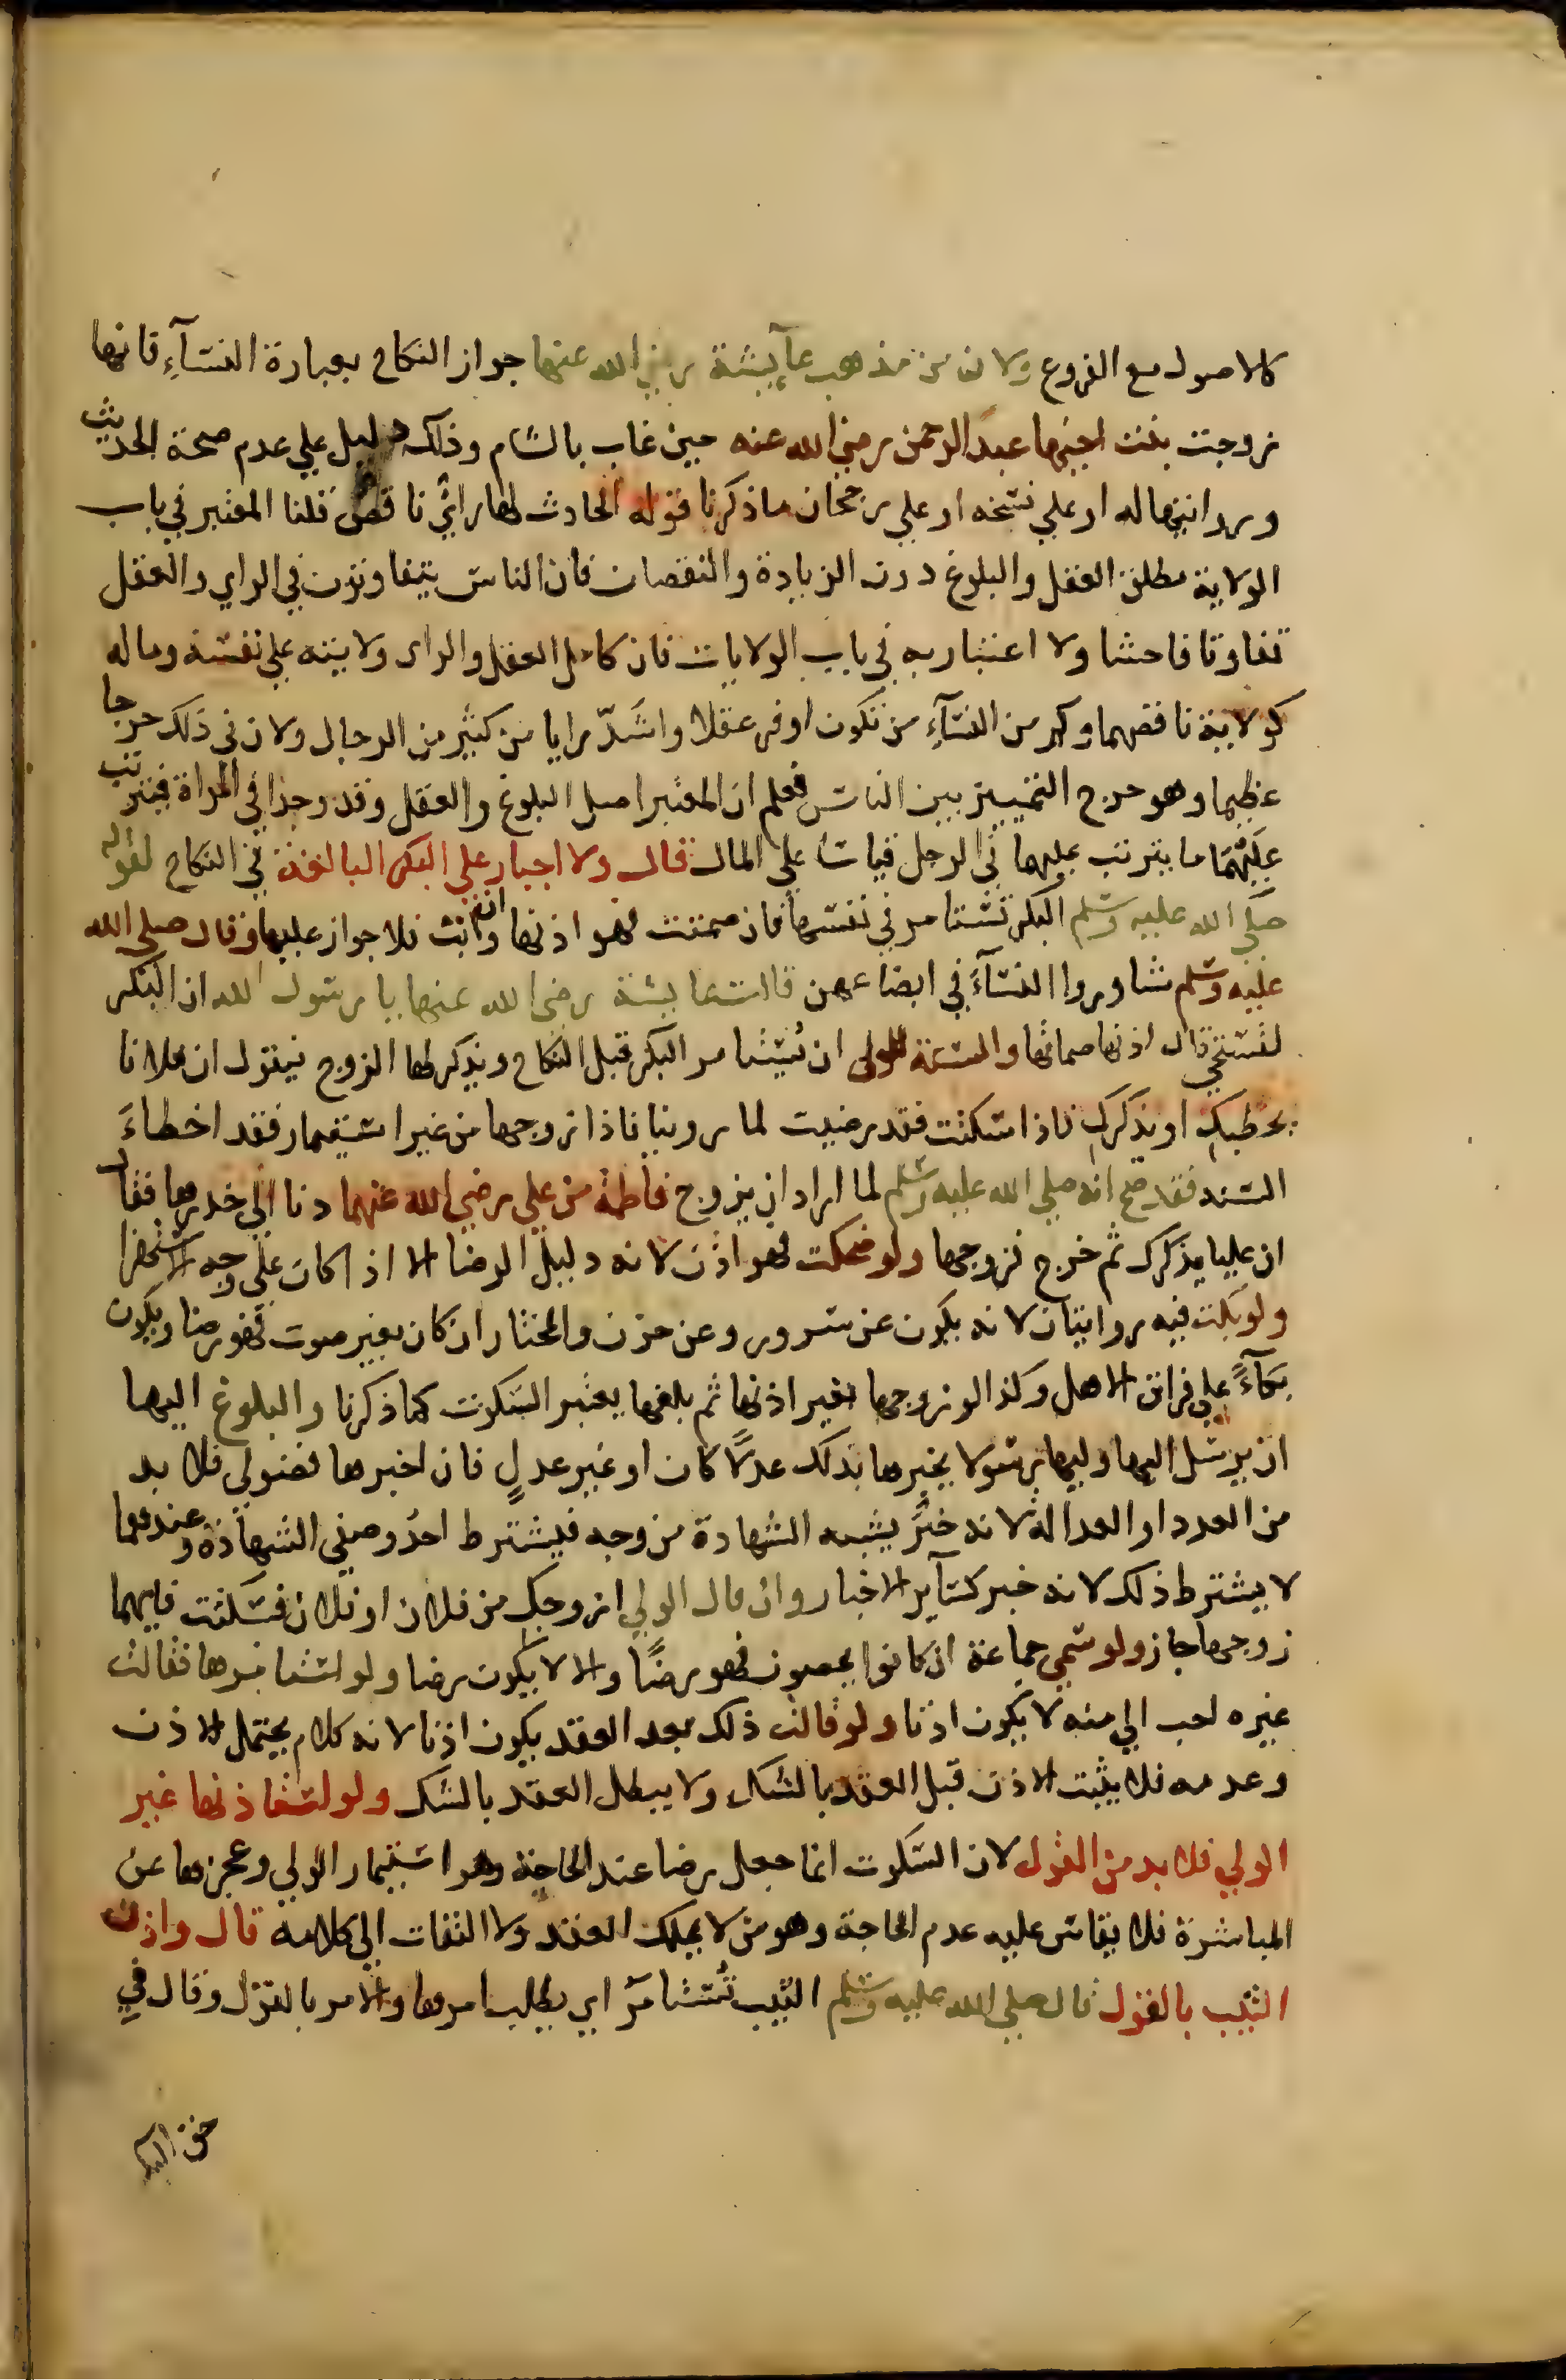 كالاصول مع الفروع ولان من مذهب عآيشة رضي الله عنها جواز النكاح بعبارة النسآء فانها
زوجت بنت اخيها عبد الرحمن رضي الله عنه حين غاب بالشام وذلك دليل علي عدم صحة الحديث
وروايتها له او علي نسخه او علي رجحان ما ذكرنا قوله الحادث لها رأي ناقص قلنا المعتبر في باب
الولاية مطلق العقل والبلوغ دون الزيادة والنقصان فان الناس يتفاوتون في الراي والعقل
تفاوتا فاحشا ولا اعتبار به في باب الولايات فان كامل العقل والراى ولايته علي نفسه وماله
كولاية ناقصهما وكم من النسآء من تكون اوفر عقلا واشدّ رايا من كثير من الرجال ولان في ذلك حرجا
عظيما وهو حرج التمييز بين الناس فعلم ان المعتبر اصل البلوغ والعقل وقد وجدا في المراة فيترتب
عليهما ما يترتب عليهما في الرجل قياسا علي المال قال ولا اجبار علي البكر البالغة في النكاح لقوله
صلي الله عليه وسلم البكر تستامر في نفسها فان صمتت فهو اذنها وان ابت فلا جواز عليها وقال صلي الله
عليه وسلم شاوروا النسآء في ابضاعهن قالت عايشة رضي الله عنها يا رسول الله ان البكر
لتستحي قال اذنها صماتها والسنة للولى ان يستامر البكر قبل النكاح ويذكر لها الزوج فيقول ان فلانا
يخطبك او يذكرك فاذا سكتت فقد رضيت لما روينا فاذا زوجها من غير استيمار فقد اخطاء
السنة فقد صح انه صلي الله عليه وسلم لما اراد ان يزوج فاطمة من علي رضي الله عنهما دنا الي خدرها فقال
ان عليا يذكرك ثم خرج فزوجها ولو ضحكت فهو اذن لانه دليل الرضا الا اذا كان علي وجه الاستهزا
ولو بكت فيه روايتان لانه يكون عن سرور وعن حزن والمختار ان كان بغير صوت فهو رضا ويكون
بكآءً علي فراق الاهل وكذا لو زوجها بغير اذنها ثم بلغها يعتبر السكوت كما ذكرنا والبلوغ اليها
ان يرسل اليها وليها رسولا يخبرها بذلك عدلا كان او غير عدلٍ فان اخبرها فضولي فلا بد
من العدد او العدالة لانه خبر يشبه الشهادة من وجه فيشترط احد وصفي الشهادة وعندهما
لا يشترط ذلك لانه خبر كسآير الاخبار وان قال الولي ازوجك من فلان او فلان فسكتت فايهما
زوجها جاز ولو سمي جماعة ان كانوا يحصون فهو رضًا والا لا يكون رضا ولو استامرها فقالت
غيره احب الي منه لا يكون اذنا ولو قالت ذلك بعد العقد يكون اذنا لانه كلام يحتمل الاذن
وعدمه فلا يثبت الاذن قبل العقد بالشك ولا يبطل العقد بالشك ولو استاذنها غير
الولي فلا بد من القول لان السكوت انما جعل رضا عند الحاجة وهو استيمار الولي وعجزها عن
المباشرة فلا يقاس عليه عدم الحاجة وهو من لا يملك العقد ولا التفات الي كلامه قال واذن
الثيب بالقول قال صلي الله عليه وسلم الثيب تُستامرُ اي يطلب امرها والامر بالقول وقال في
حق البكر